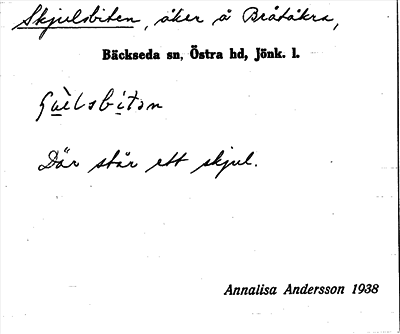 Skjulsbiten, åker å Bråtåkra,
Bäckseda sn, Östra hd, Jönk. l.
Där står ett skjul.
Annalisa Andersson 1938